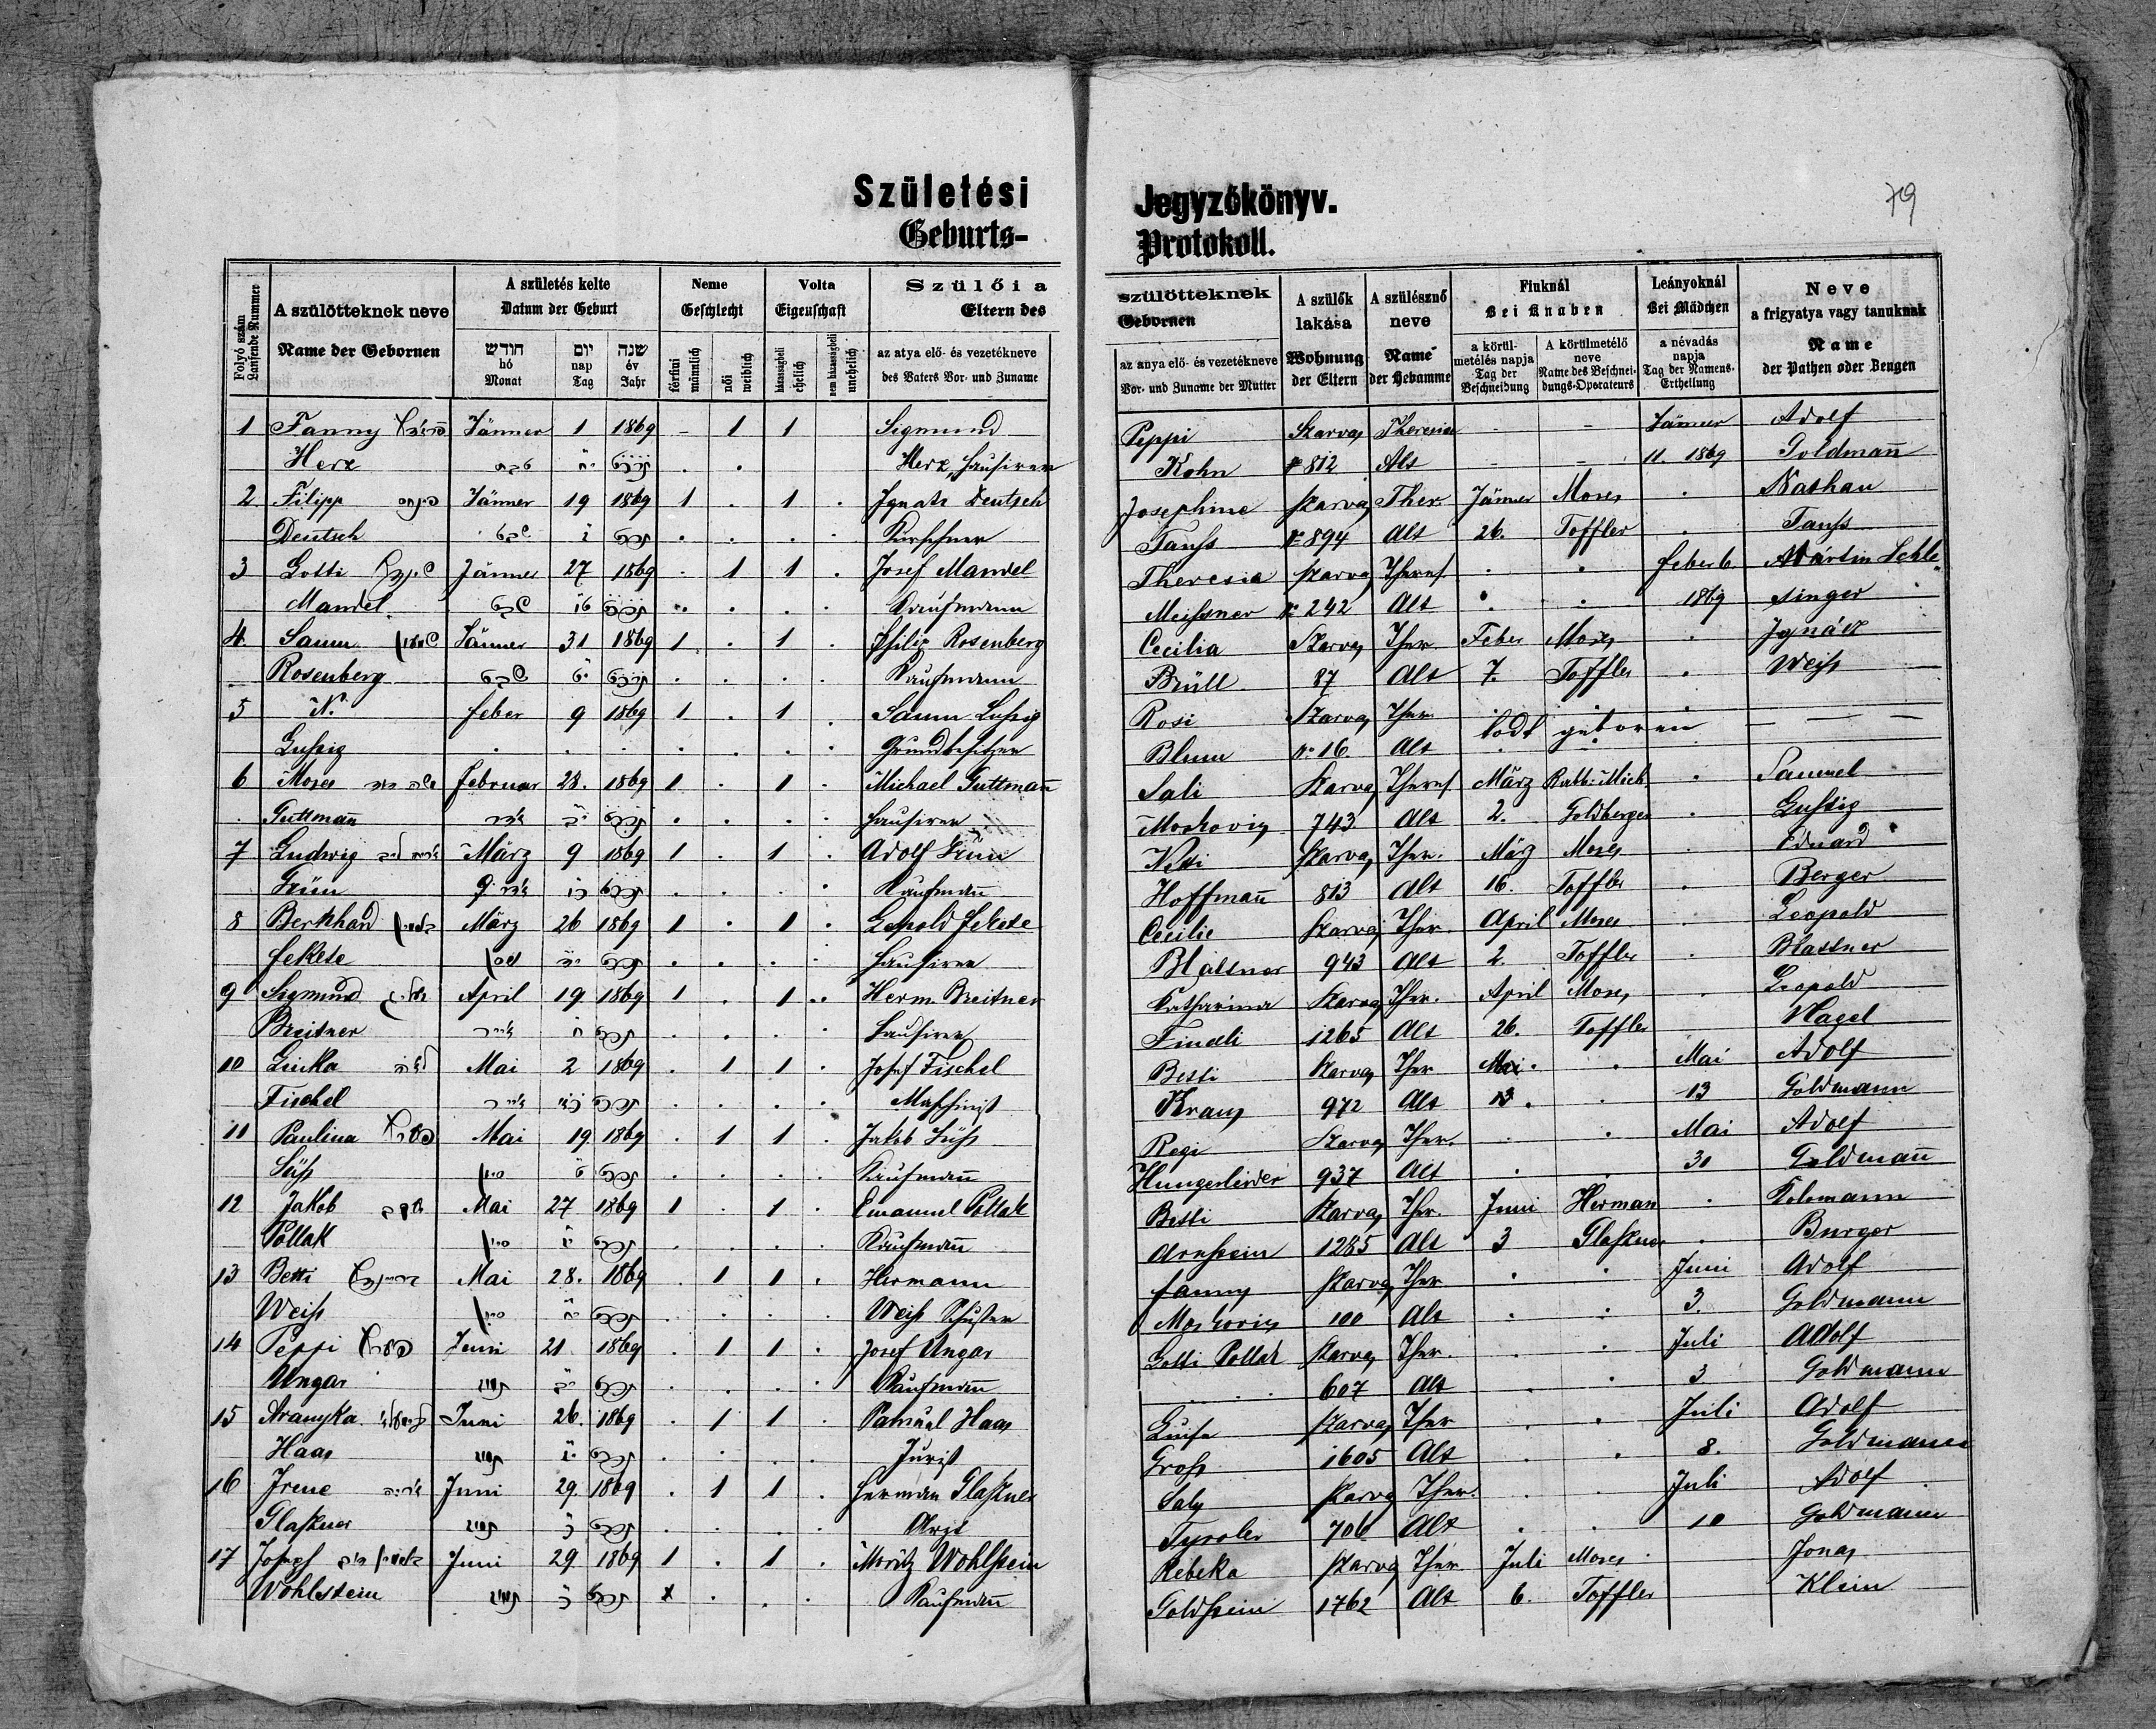 Születési Jegyzőkönyv.
Geburts- Protokoll.
79
Folyó szám
Laufende Nummer
A szülötteknek neve
Name der Gebornen
A születés kelte
Datum der Geburt
חודש
hó
Monat
יום
nap
Tag
שנה
év
Jahr
Neme
Geschlecht
férfiui
männlich
női
weiblich
Volta
Eigenschaft
házasságbeli
ehelich
nem házasságbeli
unehelich
Szülői a szülötteknek
Eltern des Gebornen
az atya elő- és vezetékneve
des Vaters Vor- und Zuname
az anya elő- és vezetékneve
Vor- und Zuname der Mutter
A szülők lakása
Wohnung der Eltern
A szülésznő neve
Name der Hebamme
Fiuknál
Bei Knaben
a körülmetélés napja
Tag der Beschneidung
A körülmetélő neve
Name des Beschneidungs-Operateurs
Leányoknál
Bei Mädchen
a névadás napja
Tag der Namens-Ertheilung
Neve
a frigyatya vagy tanuknak
Name
der Pathen oder Zeugen
1 Fanny Jänner 1 1869 - 1 1 Sigmund Peppi Szarvas Theresia - - Jänner Adolf
Herz Herz, Hausirer Kohn № 812 Alt - - 11. 1869 Goldmann̄
2 Filipp Jänner 19 1869 1 . 1 . Ignatz Deutsch Josephine Szarvas Ther. Jänner Moses . Nathan
Deutsch Kürschner Tauss № 894 Alt 26. Toffler . Tauss
3 Lotti Jänner 27 1869 . 1 1 . Josef Mandel Theresia Szarvas Theres. . . Feber 6. Mártin Schle-
Mandel Kaufmann Meissner № 242 Alt . . 1869 singer
4. Samu Jänner 31 1869 1 . 1 . Philip Rosenberg Cecilia Szarvas Ther. Feber Moses . Ignátz
Rosenberg Kaufmann Brüll 87 Alt 7. Toffler . Weiss
5 N. Feber 9 1869 1 . 1 . Samu Lussig Rosi Szarvas Ther. todt geboren — — —
Lussig Grundbesitzer Blum № 16. Alt
6 Moses Februar 28. 1869 1 . 1 . Michael Guttmann̄ Sali Szarvas Theres. März Rabb. Mich. . Samuel
Guttmann̄ Hausirer Moskovicz 743 Alt 2. Goldberger . Lussig
7 Ludwig März 9 1869 1 . 1 . Adolf Grün Netti Szarvas Ther. März Moses . Eduard
Grün Kaufmann̄ Hoffmann̄ 813 Alt 16. Toffler . Berger
8 Bernhard März 26 1869 1 . 1 . Leopold Fekete Cecilie Szarvas Ther. April Moses . Leopold
Fekete Hausirer Blattner 943 Alt 2. Toffler . Blattner
9 Sigmund April 19 1869 1 . 1 . Herm. Breitner Katharina Szarvas Ther. April Moses . Leopold
Breitner Hausirer 1265 Alt 26. Toffler Nagel
10 Linka Mai 2 1869 . 1 1 . Josef Fischel Betti Szarvas Ther. Mai . . Mai Adolf
Fischel Maschinist Kraus 972 Alt 13 . . 13 Goldmann
11 Paulina Mai 19 1869 . 1 1 . Jakob Süss Regi Szarvas Ther. . . Mai Adolf
Süss Kaufmann̄ Hungerleider 937 Alt . . 30 Goldmann̄
12 Jakob Mai 27 1869 1 . 1 . Emanuel Pollak Betti Szarvas Ther. Juni Herman . Kolomann
Pollak Kaufmann̄ Arnstein 1285 Alt 3 Glasner . Burger
13 Betti Mai 28. 1869 . 1 1 . Hermann Fanny Szarvas Ther . . Juni Adolf
Weiss Weiss Schuster Moskovicz 100 Alt . . 3. Goldmann
14 Peppi Juni 21 1869 . 1 1 . Josef Ungar Lotti Pollak Szarvas Ther. . . Juli Adolf
Ungar Kaufmann̄ . . 607 Alt . . 3 Goldmann
15 Aranyka Juni 26. 1869 . 1 1 . Samuel Haas Luise Szarvas Ther . . Juli Adolf
Haas Jurist Gross 1605 Alt . . 8. Goldmann
16 Irene Juni 29. 1869 . 1 1 . Herman Glasner Saly Szarvas Ther. . . Juli Adolf
Glasner Arzt Tyroler 706 Alt . . 10 Goldmann
17 Josef Juni 29 1869 1 . 1 . Moritz Wohlstein Rebeka Szarvas Ther. Juli Moses . Jonas
Wohlstein x Kaufmann̄ Goldstein 1762 Alt 6. Toffler Klein